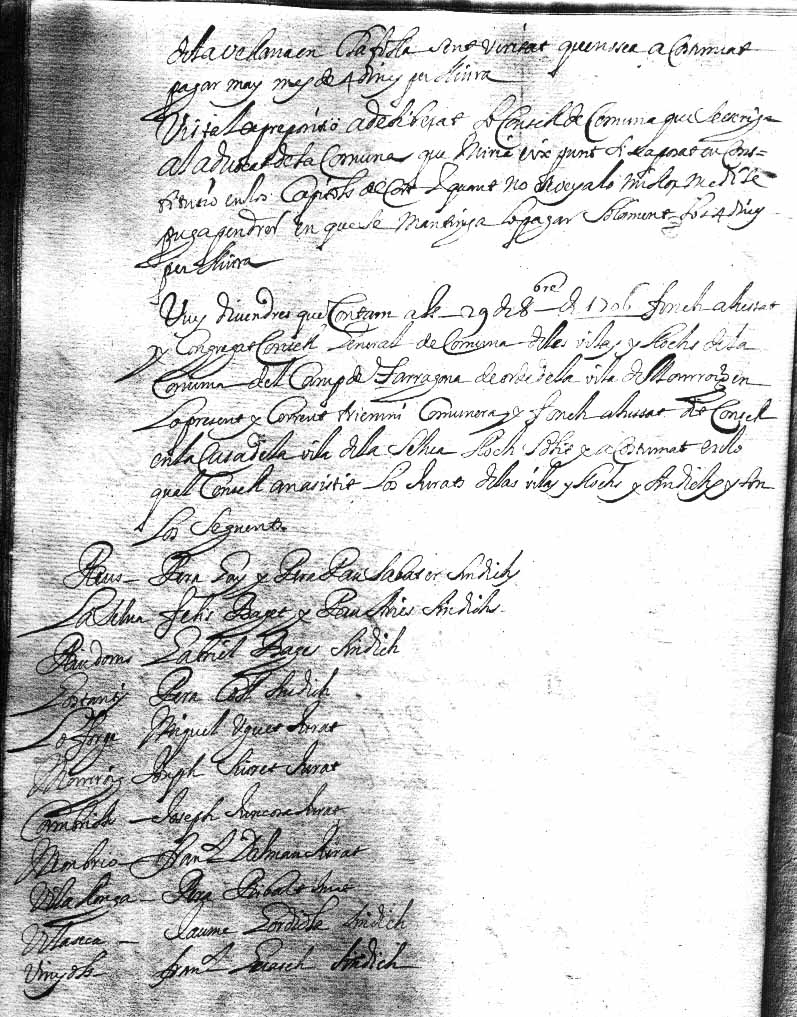 della vehana en Clafolla sent veritat que no sea acostumat
pagar may mes de 4 diners per lliura
Vista la preposisio a deliberat lo Consell de Comuna que se escriga
al advocat de la Comuna que miria eix punt si es aposat en Cons=
titusio en los Capitols de Cort y quant no si veya lo millor medi se
puga pendrer en que se mantinga lo pagar solament los 4 diners
per lliura
Vuy divendres que Contam als 29 de 8bre de 1706 fonch ahustat
y Congregat Consell General de Comuna de les vilas y llochs de la
Comuna del Camp de Tarragona de orde de la vila de Monroig en
lo present y Corrent trienni Comunera y fonch ahustat dit Consell
en la Casa de la vila de la Selva lloch solit y acostumat en lo
qual Consell an asistit los Jurats de las vilas y llochs y sindichs y son
los seguents
Reus – Pera Loy y Pere Pau Sabater sindich
La Selva Felis Baget y Pau Aries sindichs
Riudoms Gabriel Bages sindich
Costanti Pera Coll sindich
Lo Forge Miguel Uguet Jurat
Monroig Joseph Lloret Jurat
Cambrils – Joseph Juncosa Jurat
Monbrio – Franch Dalmau Jurat
Vilallonga – Pera Ribalt Jurat
Vilaseca – Jaume sindich
Vinyols – Franch sindich